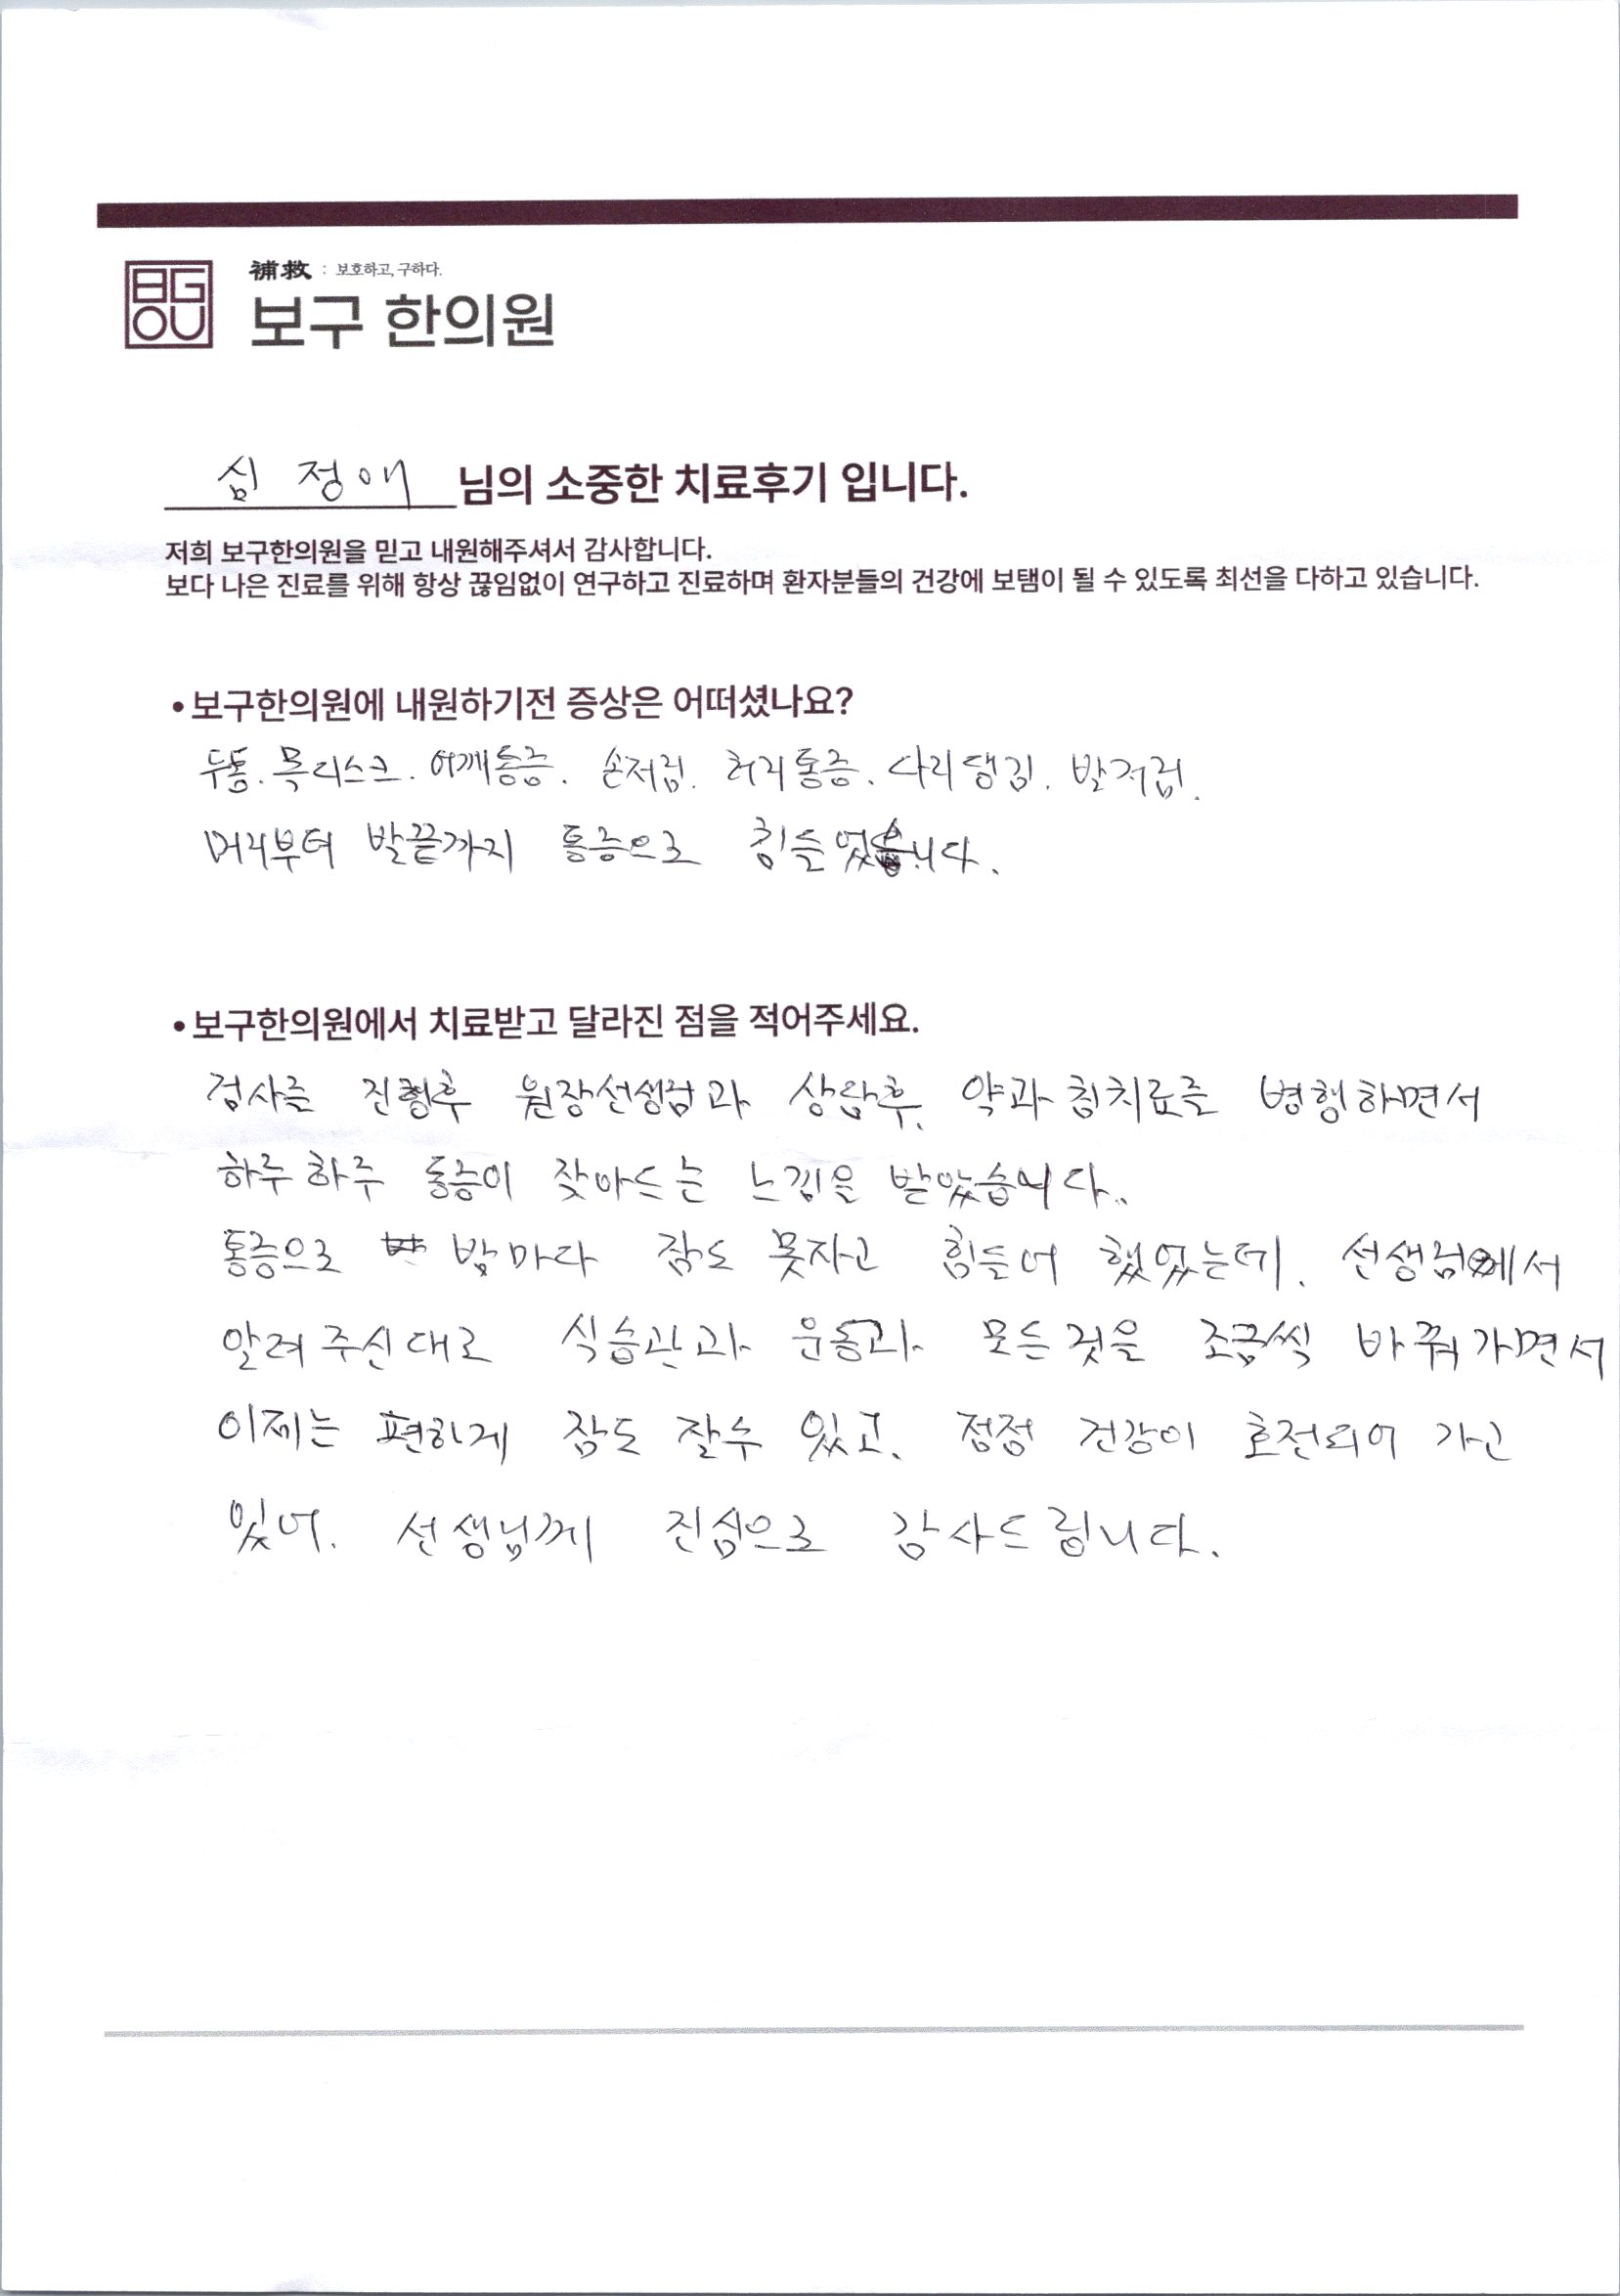 BG
OU
補救 : 보호하고, 구하다.
보구 한의원
심 정애 님의 소중한 치료후기 입니다.
저희 보구한의원을 믿고 내원해주셔서 감사합니다.
보다 나은 진료를 위해 항상 끊임없이 연구하고 진료하며 환자분들의 건강에 보탬이 될 수 있도록 최선을 다하고 있습니다.
• 보구한의원에 내원하기전 증상은 어떠셨나요?
두통. 목디스크. 어깨통증. 손저림. 허리통증. 다리땡김. 발저림.
머리부터 발끝까지 통증으로 힘들었습니다.
• 보구한의원에서 치료받고 달라진 점을 적어주세요.
검사를 진행후 원장선생님과 상담후, 약과 침치료를 병행하면서
하루하루 통증이 잦아드는 느낌을 받았습니다..
통증으로 밤마다 잠도 못자고 힘들어 했었는데, 선생님께서
알려주신대로 식습관과 운동과 모든것을 조금씩 바꿔가면서
이제는 편하게 잠도 잘수 있고, 점점 건강이 호전되어 가고
있어. 선생님께 진심으로 감사드립니다.